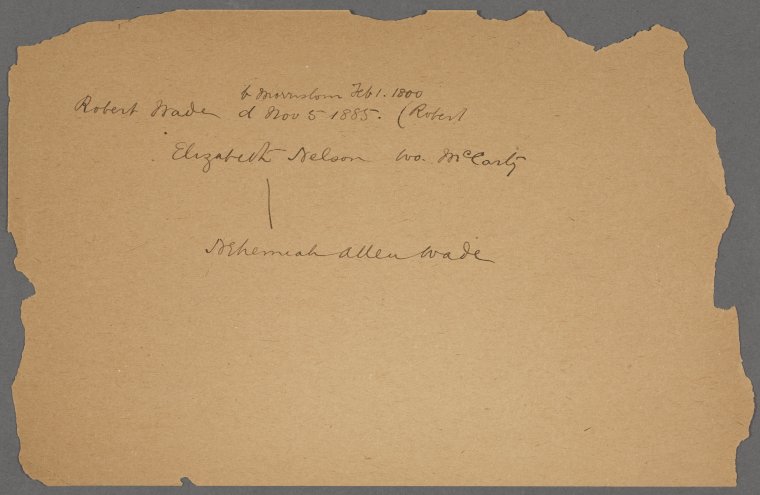 b Morristown Feb 1. 1800
Robert Wade d Nov 5 1885. (Robert
Elizabeth Nelson wo. McCarty
Nehemiah Allen Wade